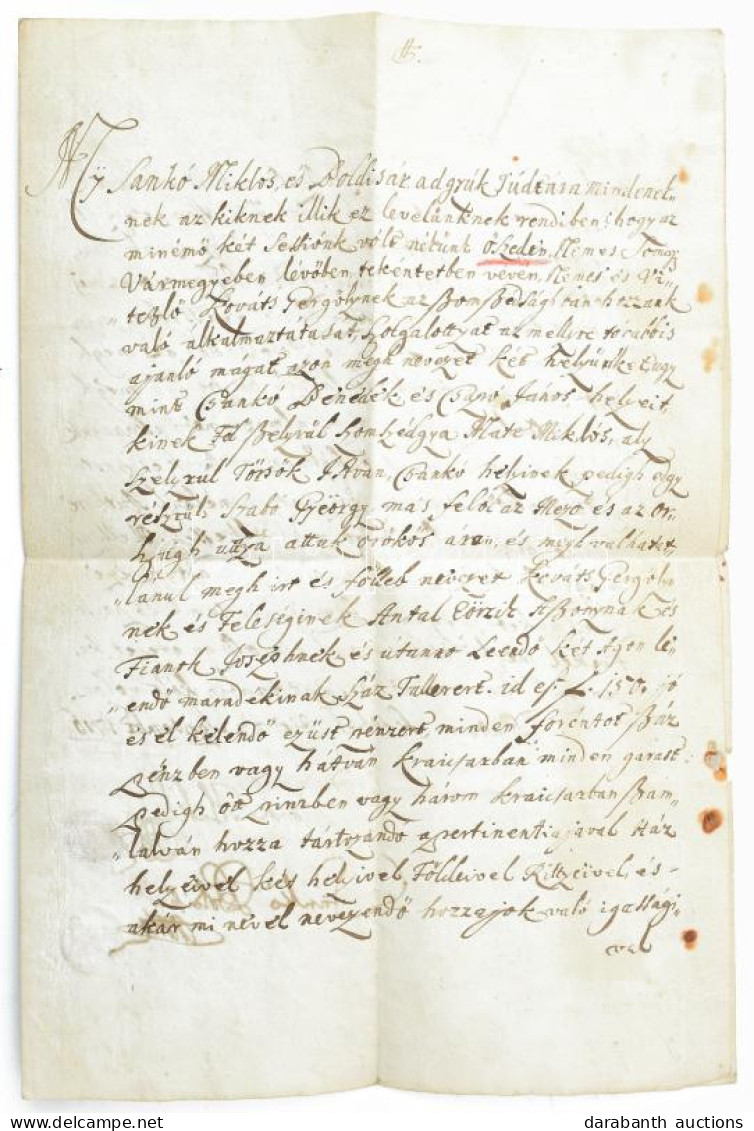 My Sankó Miklós, és Boldisár adgyúk Túdtára mindenek„
nek az kiknek illik ez levelünknek rendiben: hogy az
minémő két Sessiónk vólt nékünk őszeden, Nemes Torna
Vármegyében lévőben, tekéntetben vévén, Nemes és Vi„
„tezlő Kováts Gergölynek az Bonbédsági hozzank
való álkalmaztátasat, szolgalottyat az mellyre továbbis
ajanló magat azon megh nevezet két helyünket, ugy
mint Csankó Bénédék és Csapó János helyeit,
kinek Fel szelyrül szomszédgya Mate Miklós, aly
szelyrul Törsök István, Csankó helyinek pedigh egy
részrül Szabo Györgÿ, más felöl az Mező és az Or„
szágh uttya attuk örökös áran, és megh valhatat„
„lanul megh irt és föllieb nevezet Kováts Gergöly
nek és Feleséginek Antal Törzsik Aszonynak és
Fianok Joséphnek és útanno Leendő két ágon lé„
„endő maradékinak száz Tallerert. id est f. 150. jó
és él kelendő ezüst pénzert, minden forentot száz
pénzben vagy hatván kraiczarban minden garast
pedigh ött pinzben vagy három kraiczarban szám„
„lalván hozza tártozandó apertinentiajaval Ház
helyeivel két helyivel Földeivel Rittyeivel, és -
akár mi nével nevezendő hozzajok való igassági„
vel
darabanth auctions